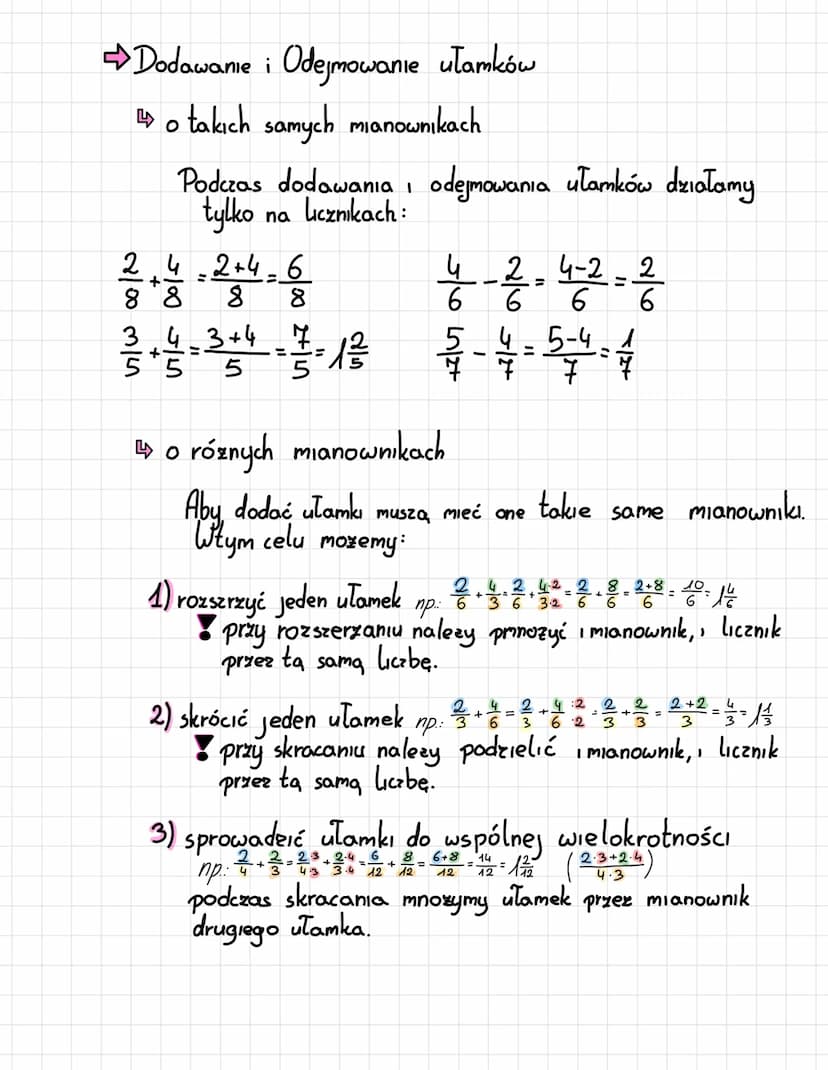 ➡ Dodawanie i Odejmowanie ułamków
↳ o takich samych mianownikach
Podczas dodawania i odejmowania ułamków działamy
tylko na licznikach:
2/8 + 4/8 = (2+4)/8 = 6/8    4/6 - 2/6 = (4-2)/6 = 2/6
3/5 + 4/5 = (3+4)/5 = 7/5 = 1 2/5    5/7 - 4/7 = (5-4)/7 = 1/7
↳ o róznych mianownikach
Aby dodać ułamki muszą mieć one takie same mianowniki.
Wtym celu mozemy:
1) rozszrzyć jeden ułamek np.: 2/6 + 4/3 = 2/6 + (4·2)/(3·2) = 2/6 + 8/6 = (2+8)/6 = 10/6 = 1 4/6
! przy rozszerzaniu nalezy pmnozyć i mianownik, i licznik
przez tą samą liczbę.
2) skrócić jeden ułamek np.: 2/3 + 4/6 = 2/3 + (4:2)/(6:2) = 2/3 + 2/3 = (2+2)/3 = 4/3 = 1 1/3
! przy skracaniu nalezy podzielić i mianownik, i licznik
przez tą samą liczbę.
3) sprowadzić ułamki do wspólnej wielokrotności
np.: 2/4 + 2/3 = (2·3)/(4·3) + (2·4)/(3·4) = 6/12 + 8/12 = (6+8)/12 = 14/12 = 1 2/12 ((2·3+2·4)/(4·3))
podczas skracania mnozymy ułamek przez mianownik
drugiego ułamka.